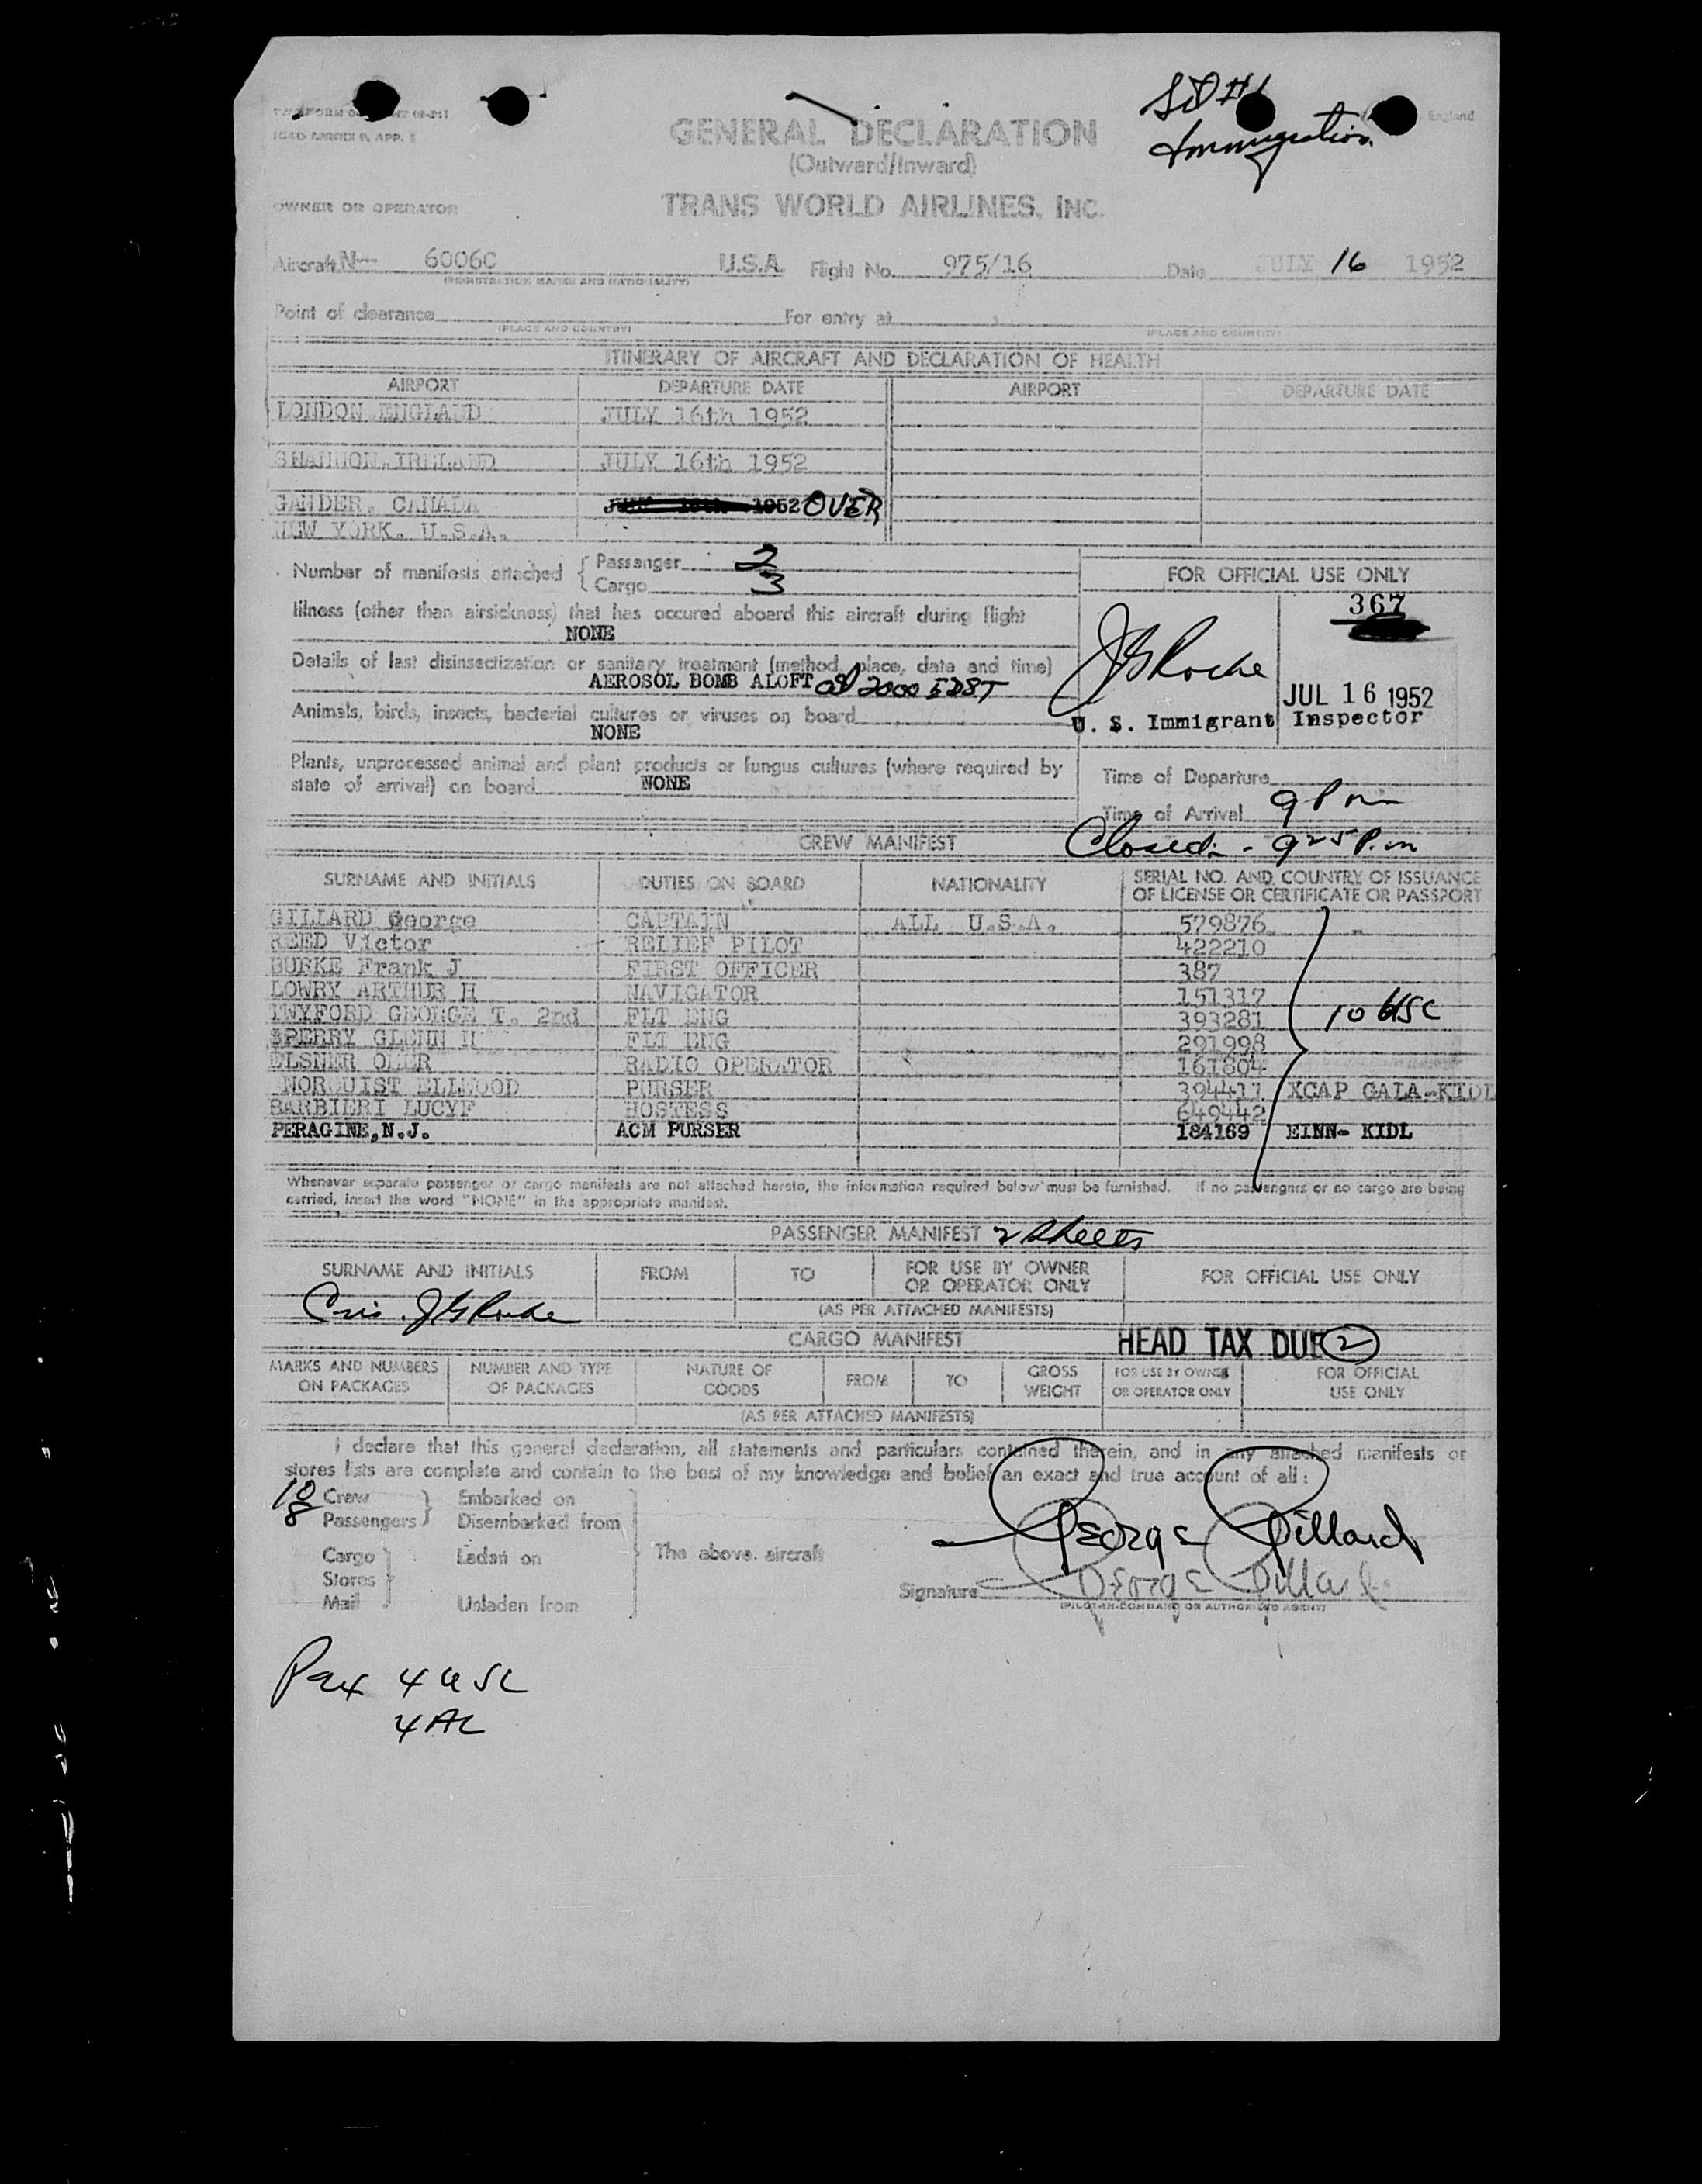 SD #1
Immigration
England
ICAO ANNEX 9, APP. 1
GENERAL DECLARATION
(Outward/Inward)
OWNER OR OPERATOR
TRANS WORLD AIRLINES, INC.
Aircraft N- 6006C U.S.A. Flight No. 975/16 Date JULY 16 1952
(REGISTRATION MARKS AND NATIONALITY)
Point of clearance For entry at
(PLACE AND COUNTRY) (PLACE AND COUNTRY)
ITINERARY OF AIRCRAFT AND DECLARATION OF HEALTH
AIRPORT DEPARTURE DATE AIRPORT DEPARTURE DATE
LONDON ENGLAND JULY 16th 1952
SHANNON. IRELAND JULY 16th 1952
GANDER. CANADA 1952 OVER
NEW YORK. U.S.A.
Number of manifests attached { Passenger 2
Cargo 3
FOR OFFICIAL USE ONLY
367
Illness (other than airsickness) that has occured aboard this aircraft during flight
NONE
Details of last disinsectization or sanitary treatment (method, place, date and time)
AEROSOL BOMB ALOFT at 2000 EDST
JG Roche
JUL 16 1952
U. S. Immigrant Inspector
Animals, birds, insects, bacterial cultures or viruses on board
NONE
Plants, unprocessed animal and plant products or fungus cultures (where required by
state of arrival) on board NONE
Time of Departure
Time of Arrival 9 P m
Closed - 925 P.m
CREW MANIFEST
SURNAME AND INITIALS DUTIES ON BOARD NATIONALITY SERIAL NO. AND COUNTRY OF ISSUANCE
OF LICENSE OR CERTIFICATE OR PASSPORT
GILLARD George CAPTAIN ALL U.S.A. 579876
REED Victor RELIEF PILOT 422210
BURKE Frank J FIRST OFFICER 387
LOWRY ARTHUR H NAVIGATOR 151317
TWYFORD GEORGE T. 2nd FLT ENG 393281 10 USC
SPERRY GLENN H FLT ENG 291998
ELSNER OMER RADIO OPERATOR 161804
NORQUIST ELLWOOD PURSER 394417 XCAP GALA-KIDL
BARBIERI LUCYF HOSTESS 649442
PERAGINE,N.J. ACM PURSER 184169 EINN- KIDL
Whenever separate passenger or cargo manifests are not attached hereto, the information required below must be furnished. If no passengers or no cargo are being
carried, insert the word "NONE" in the appropriate manifest.
PASSENGER MANIFEST 2 Sheets
SURNAME AND INITIALS FROM TO FOR USE BY OWNER
OR OPERATOR ONLY FOR OFFICIAL USE ONLY
(AS PER ATTACHED MANIFESTS)
CARGO MANIFEST HEAD TAX DUE 2
MARKS AND NUMBERS
ON PACKAGES NUMBER AND TYPE
OF PACKAGES NATURE OF
GOODS FROM TO GROSS
WEIGHT FOR USE BY OWNER
OR OPERATOR ONLY FOR OFFICIAL
USE ONLY
(AS PER ATTACHED MANIFESTS)
I declare that this general declaration, all statements and particulars contained therein, and in any attached manifests or
stores lists are complete and contain to the best of my knowledge and belief an exact and true account of all:
10 Crew Embarked on
8 Passengers Disembarked from
Cargo Ladan on The above aircraft
Stores
Mail Unladen from
George Gillard
Signature George Gillard
(PILOT-IN-COMMAND OR AUTHORIZED AGENT)
Pax 4 USC
4 AL